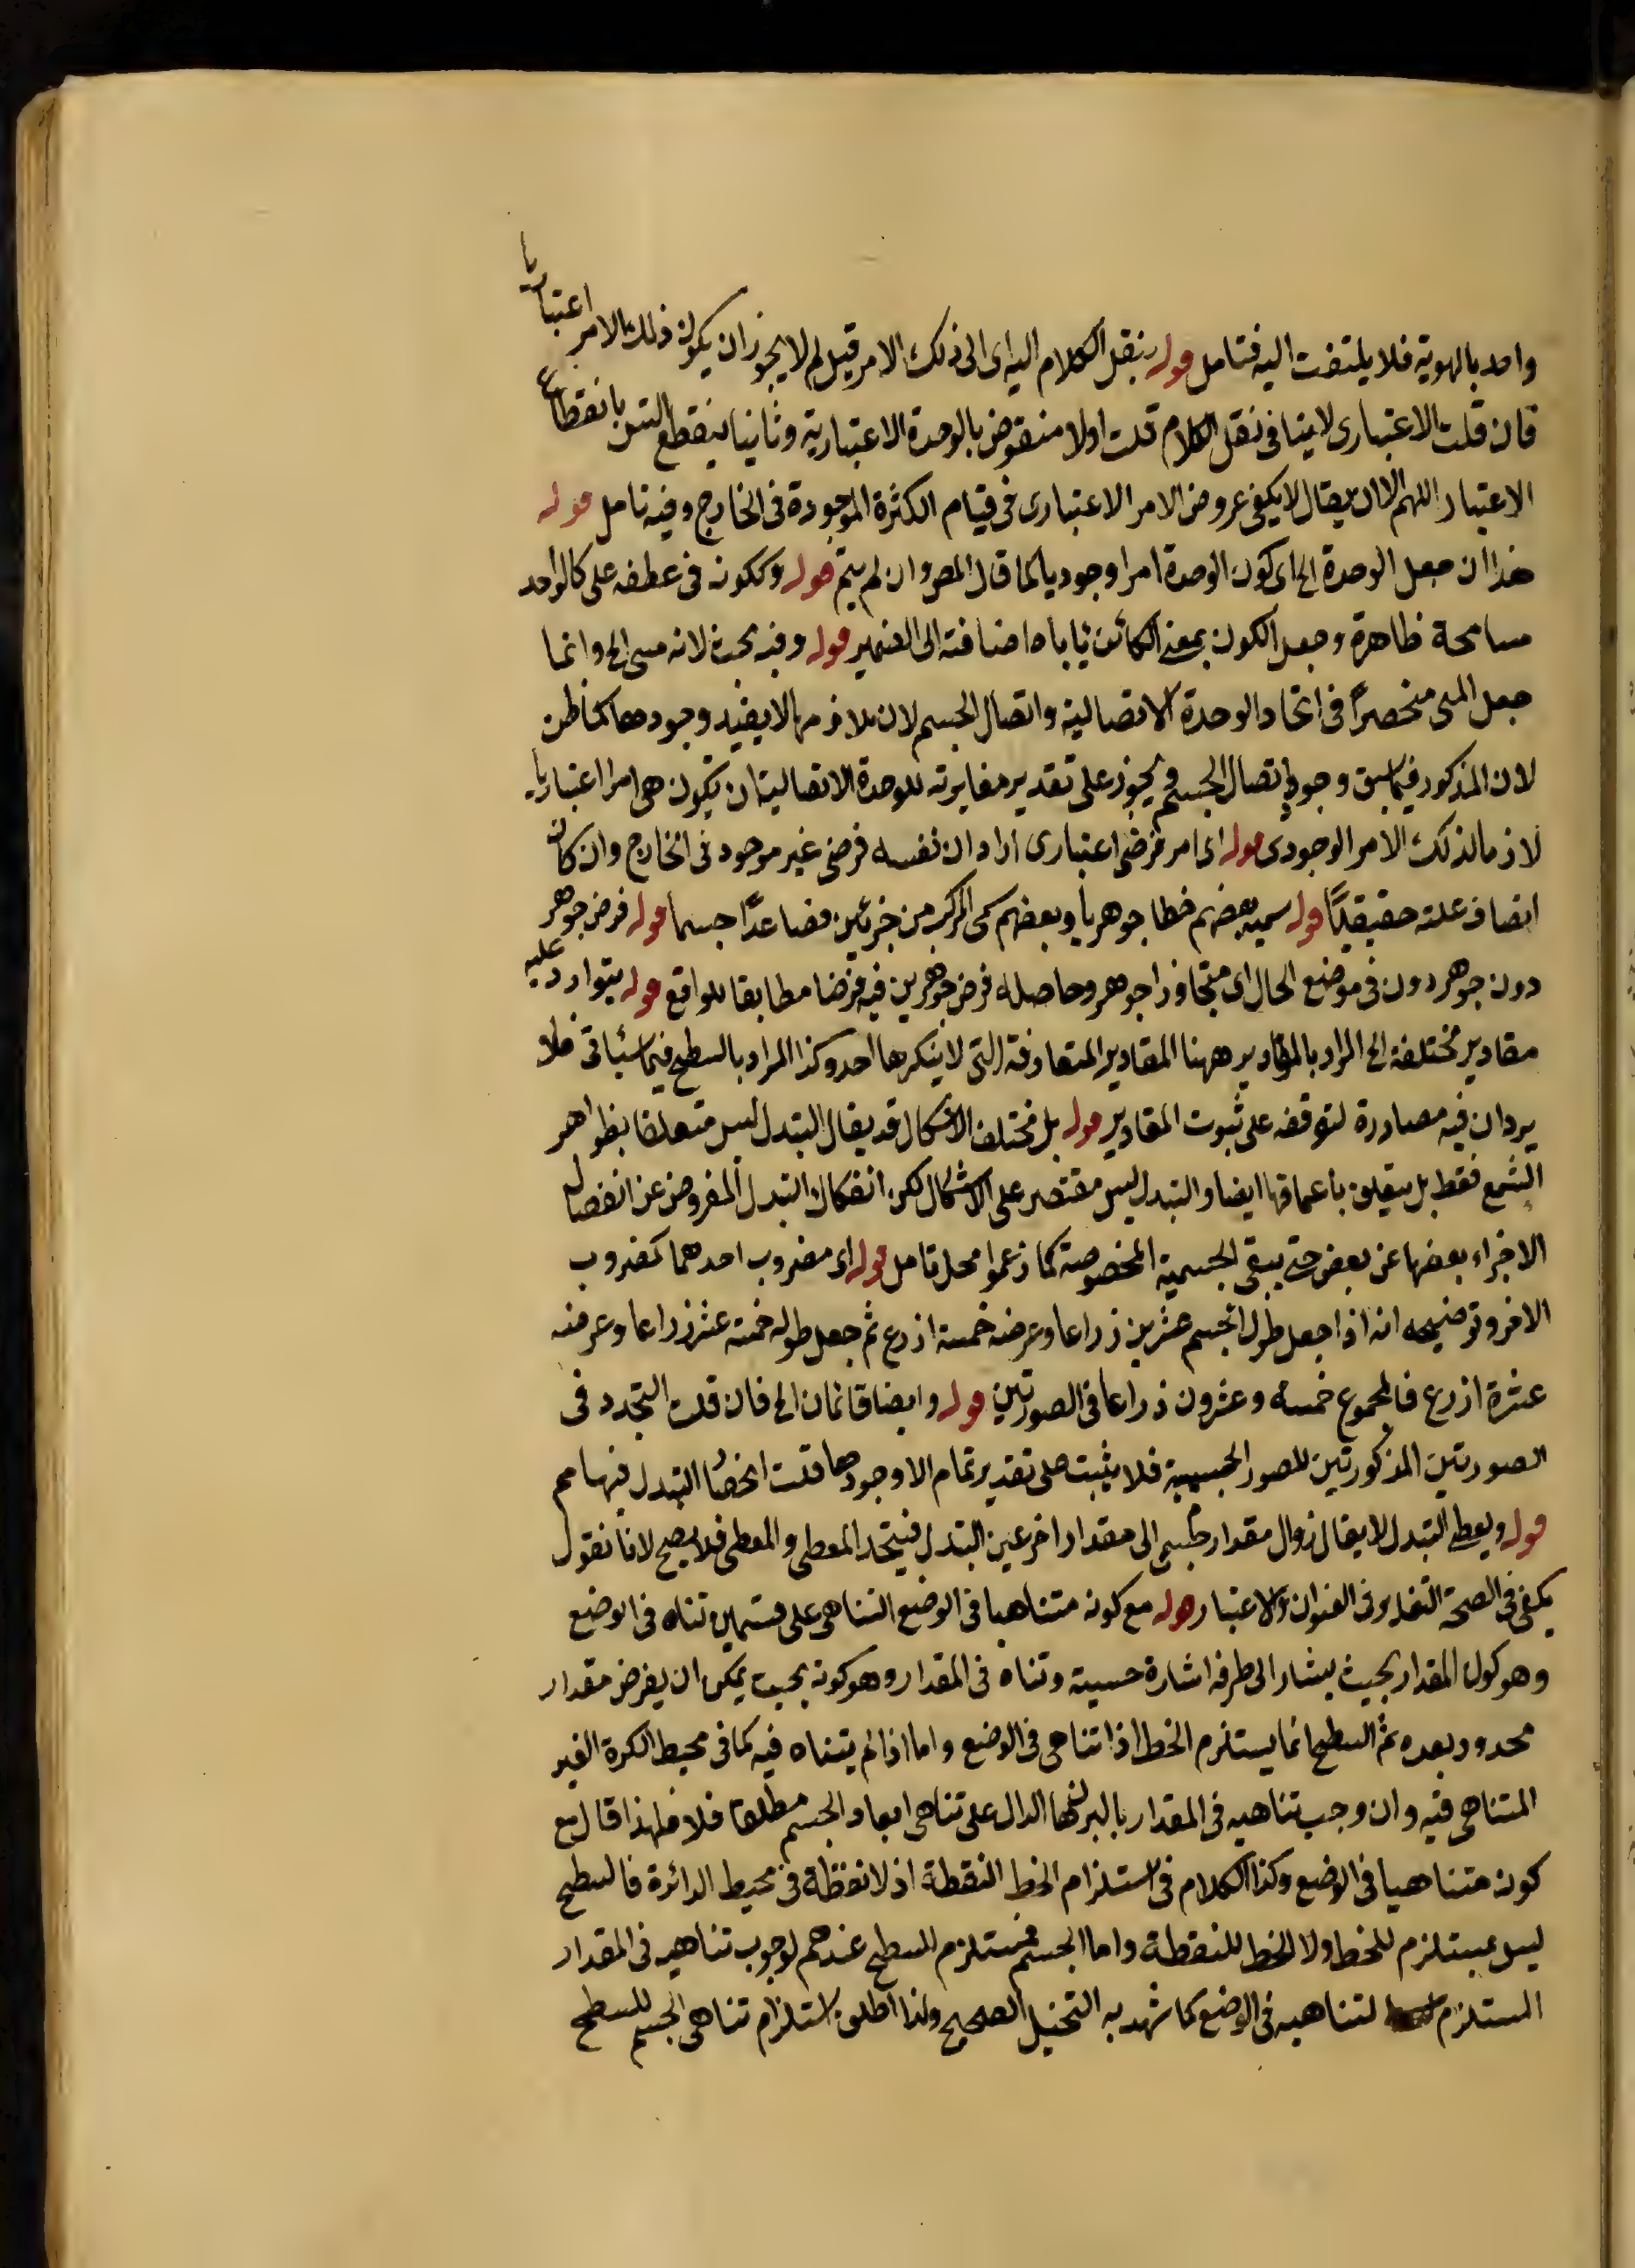 واحد بالهوية فلا يلتفت اليه فتامل قوله ننقل الكلام اليه اى الى ذلك الامر قيل لم لا يجوز ان يكون ذلك الامر اعتباريا
فان قلت الاعتبارى لا ينافى نقل الكلام قلت اولا منقوض بالوحدة الاعتبارية وثانيا ينقطع التس بانقطاع
الاعتبار اللهم الا ان يقال لا يكفى عروض الامر الاعتبارى فى قيام الكثرة الموجودة فى الخارج وفيه تامل قوله
هذا ان جعل الوحدة الخ اى كون الوحدة امرا وجوديا كما قال المص وان لم يتم قوله وككونه فى عطفه على كالواحد
مسامحة ظاهرة وجعل الكون بمعنى الكائن ياباه اضافته الى الضمير قوله وفيه بحث لانه مبنى الخ وانما
جعل المبنى منحصرًا فى اتحاد الوحدة الاتصالية واتصال الجسم لان تلازمهما لا يفيد وجودهما كما ظن
لان المذكور فيما سبق وجود اتصال الجسم ويجوز على تقدير مغايرته للوحدة الاتصالية ان يكون هى امرا اعتباريا
لازما لذلك الامر الوجودى قوله اى امر فرضى اعتبارى اراد ان نفسه فرضى غير موجود فى الخارج وان كان
اتصاف علته حقيقيًا قوله سميه بعضهم خطا جوهريا وبعضهم سمى المركب من جزئين فصاعدًا جسما قوله فرض جوهر
دون جوهر دون فى موضع الحال اى متجاوزا جوهر وحاصله فرض جوهرين فيه فرضا مطابقا للواقع قوله يتوارد عليه
مقادير مختلفة الخ المراد بالمقادير ههنا المقادير المتعارفة التى لا ينكرها احد وكذا المراد بالسطح فيما سيأتى فلا
يرد ان فيه مصادرة لتوقفه على ثبوت المقادير قوله بل مختلف الاشكال قد يقال التبدل ليس متعلقا بظواهر
الشمع فقط بل يتعلق باعماقها ايضا والتبدل ليس مقتصر على الاشكال لكن انفكاك التبدل المفروض عن انفصال
الاجزاء بعضها عن بعض حتى يبقى الجسمية المخصوصة كما زعموا محل تامل قوله اى مضروب احدهما كمضروب
الاخر وتوضيحه انه اذا جعل طول الجسم عشرين ذراعا وعرضه خمسة اذرع ثم جعل طوله خمسة عشر ذراعا وعرضه
عشرة اذرع فالمجموع خمسة وعشرون ذراعا فى الصورتين قوله وايضا قائمان الخ فان قلت التجدد فى
الصورتين المذكورتين للصور الجسمية فلا يثبت على تقدير تمام الا وجودها قلت انحصا التبدل فيها مم
قوله ويعطى التبدل لا يقال زوال مقدار جسم الى مقدار اخر عين التبدل فيتحد المعطى والمعطى فلا يصح لانا نقول
يكفى فى الصحة التغاير فى العنوان والاعتبار قوله مع كونه متناهيا فى الوضع التناهى على قسمين تناه فى الوضع
وهو كون المقدار بحيث يشار الى طرفه اشارة حسية وتناه فى المقدار وهو كونه بحيث يمكن ان يفرض مقدار
محدود بعده ثم السطح انما يستلزم الخط اذا تناهى فى الوضع واما اذا لم يتناه فيه كما فى محيط الكرة الغير
المتناهى فيه وان وجب تناهيه فى المقدار بالبرهان الدال على تناهى ابعاد الجسم مطلقا فلا فلهذا قال مع
كونه متناهيا فى الوضع وكذا الكلام فى استلزام الخط النقطة اذ لا نقطة فى محيط الدائرة فالسطح
ليس بمستلزم للخط ولا الخط للنقطة واما الجسم فمستلزم للسطح عندهم لوجوب تناهيه فى المقدار
المستلزم لتناهيه فى الوضع كما شهد به التخيل الصحيح ولذا اطلق استلزام تناهى الجسم للسطح